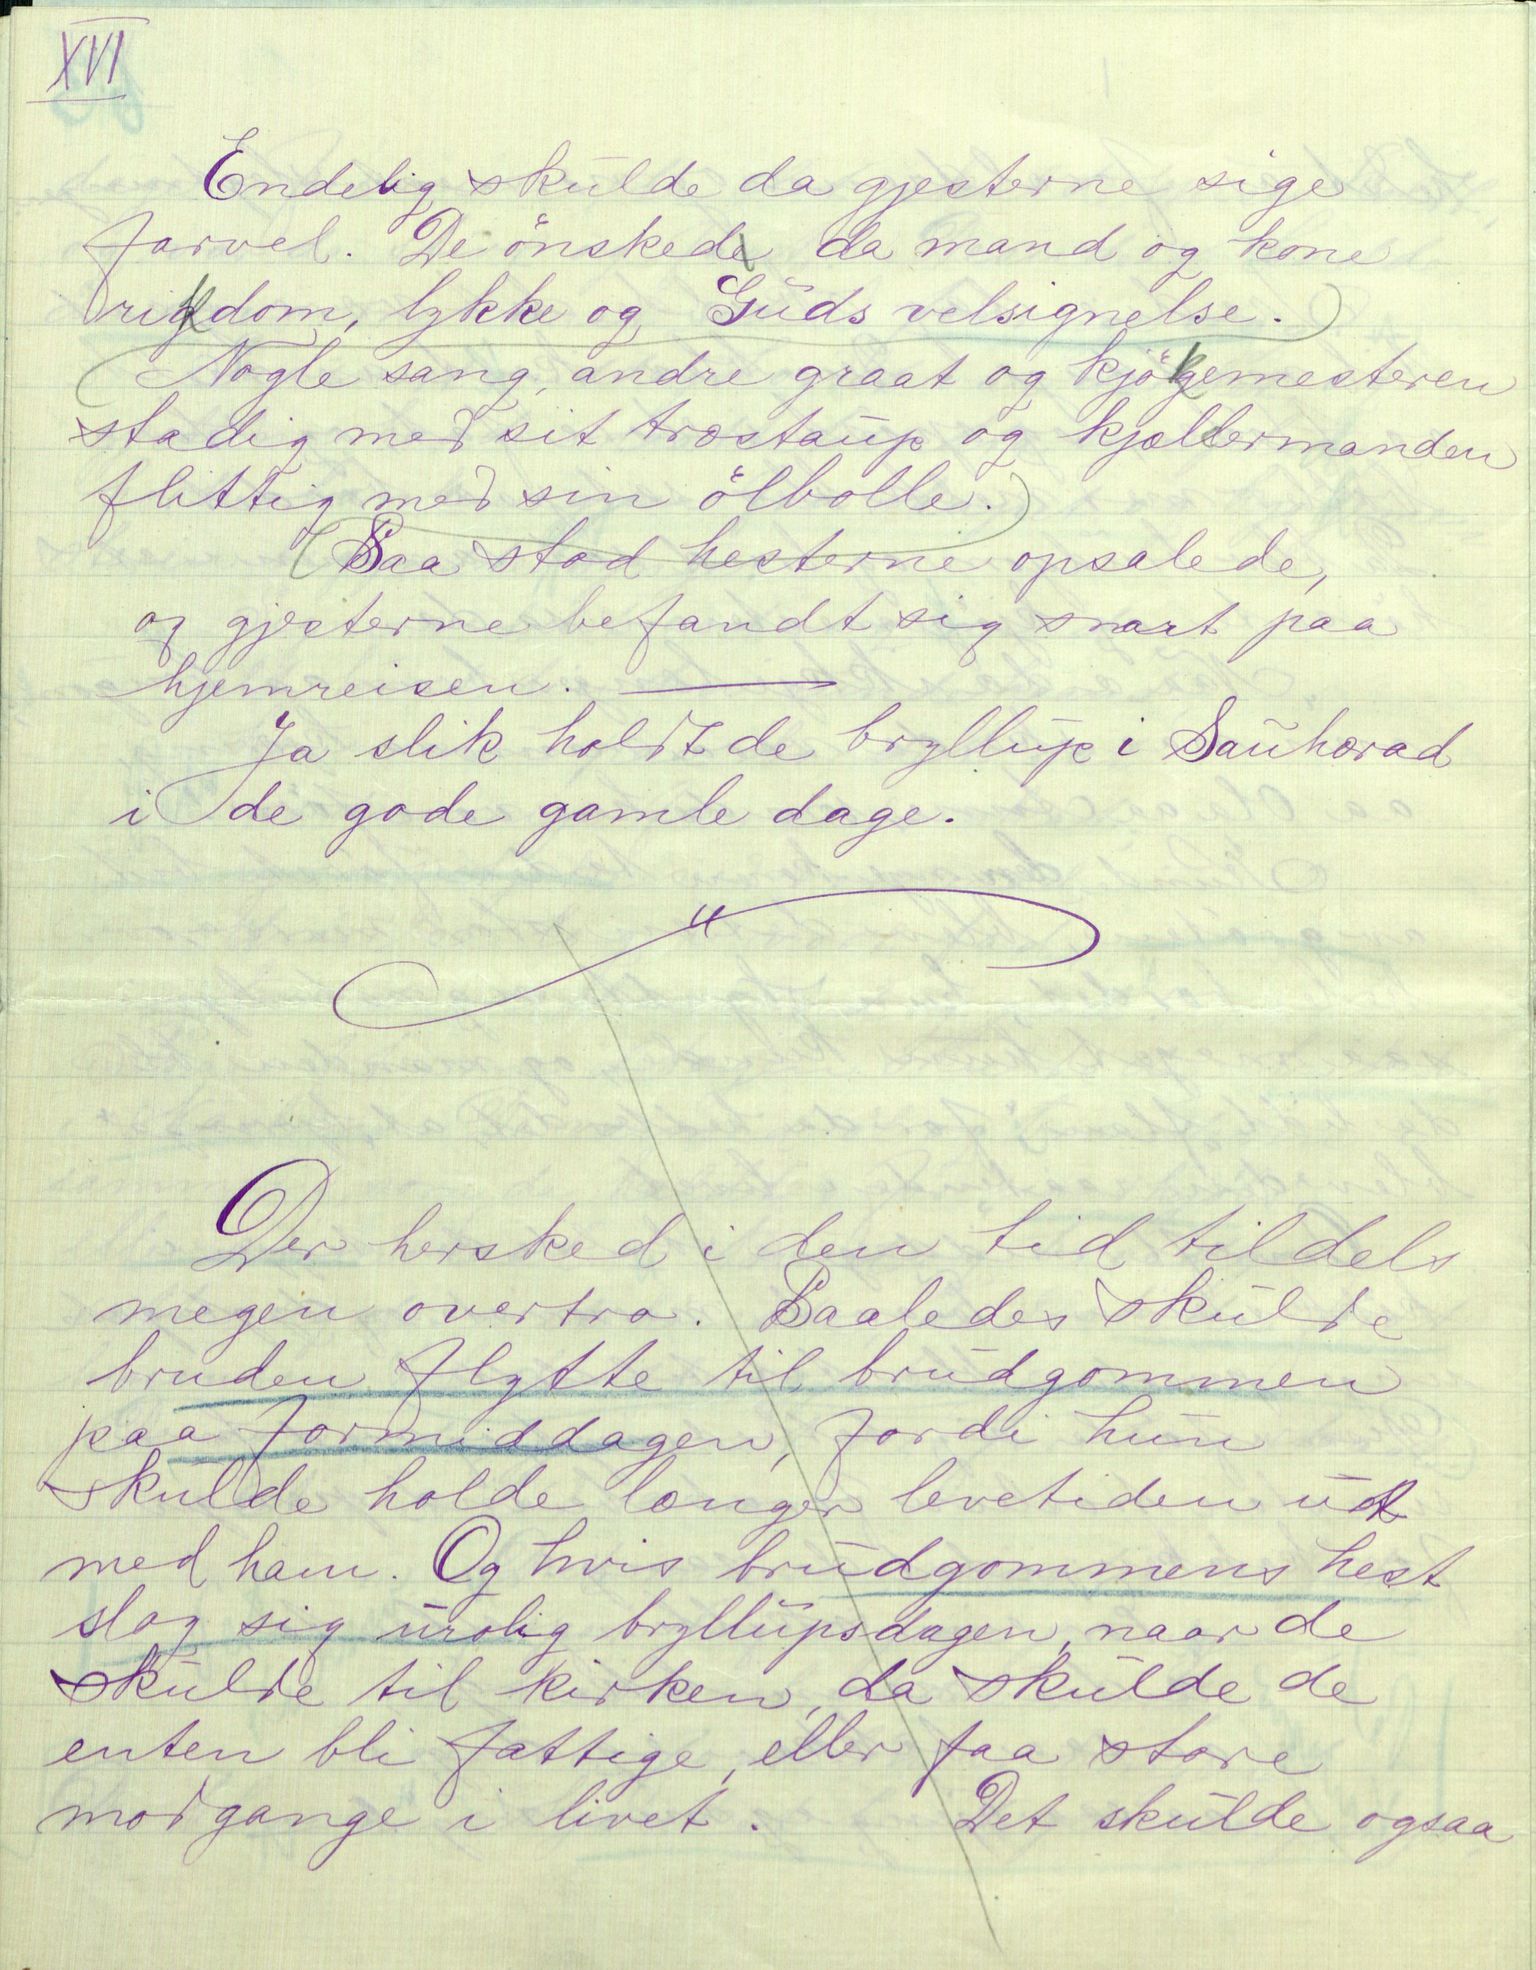 XVI
Endelig skulde da gjesterne sige
farvel. De önskede da mand og kone
rikdom, lykke og Guds velsignelse.
Nogle sang, andre graat og kjökemesteren
stadig med sit træstaup og kjællermanden
flittig med sin ölbolle.
Saa stod hesterne opsalede,
og gjesterne befandt sig snart paa
hjemreisen. —
Ja slik holdt de bryllup i Sauherad
i de gode gamle dage.
"
Der hersked i den tid tildels
megen overtro. Saaledes skulde
bruden flytte til brudgommen
paa formiddagen, fordi hun
skulde holde længer levetiden ut
med ham. Og hvis brudgommens hest
slog sig urolig bryllupsdagen, naar de
skulde til kirken, da skulde de
enten bli fattige, eller faa store
modgange i livet. Det skulde ogsaa